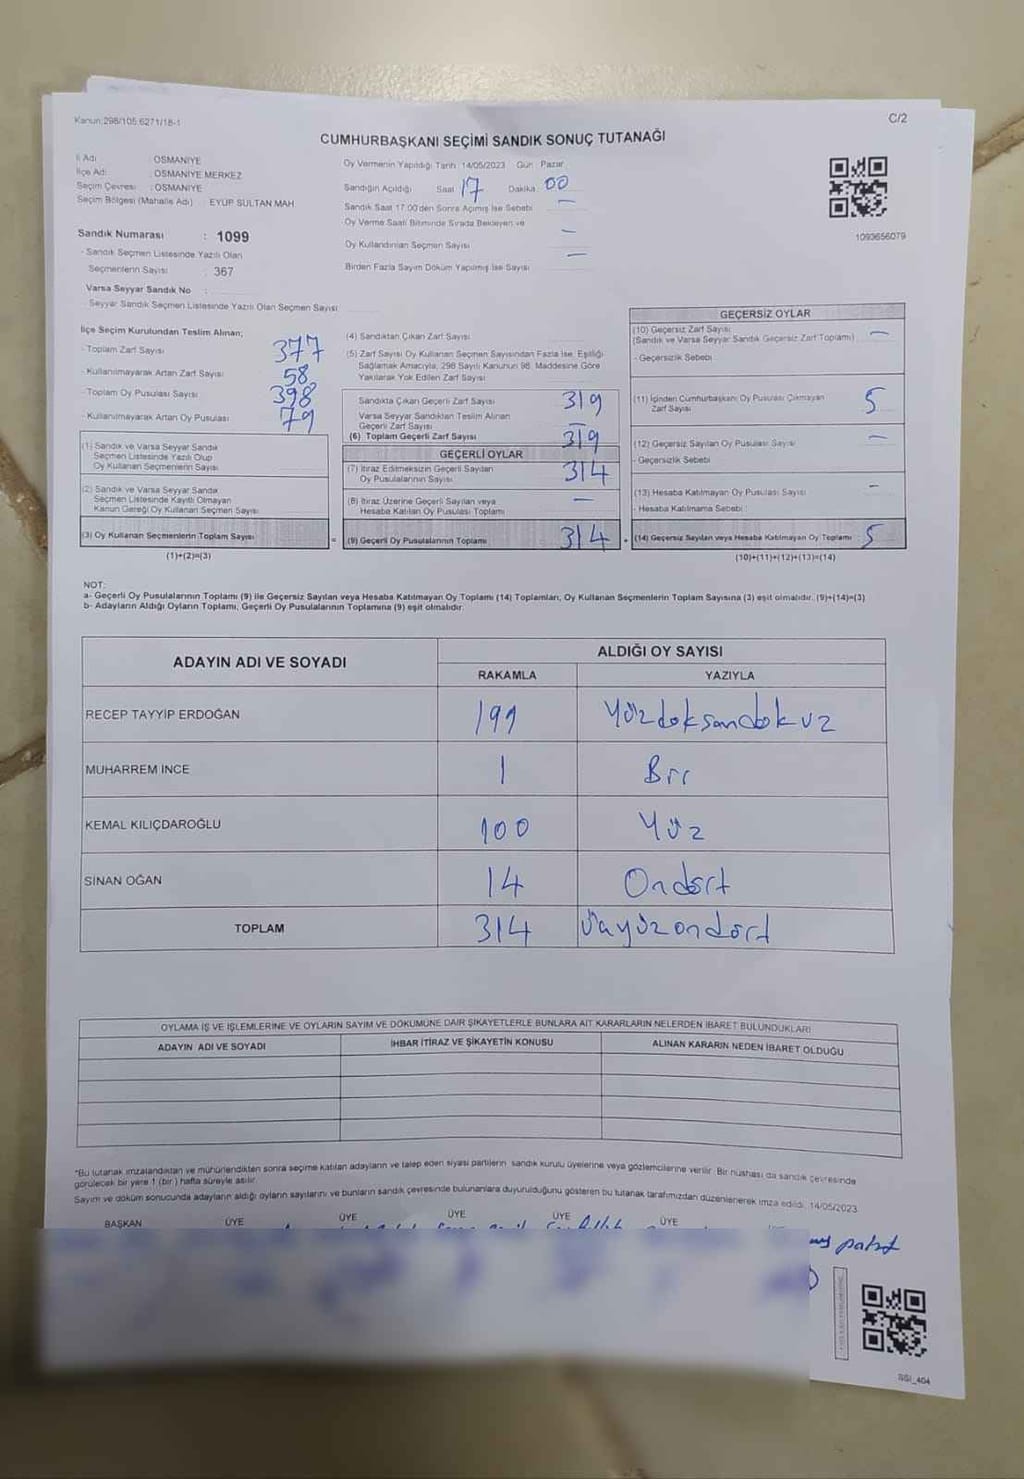 Kanun:298/105 6271/18-1
C/2
CUMHURBAŞKANI SEÇİMİ SANDIK SONUÇ TUTANAĞI
İl Adı : OSMANİYE
İlçe Adı : OSMANİYE MERKEZ
Seçim Çevresi : OSMANİYE
Seçim Bölgesi (Mahalle Adı) : EYÜP SULTAN MAH
Sandık Numarası : 1099
- Sandık Seçmen Listesinde Yazılı Olan
Seçmenlerin Sayısı : 367
Varsa Seyyar Sandık No :
- Seyyar Sandık Seçmen Listesinde Yazılı Olan Seçmen Sayısı:
Oy Vermenin Yapıldığı Tarih: 14/05/2023 Gün: Pazar
Sandığın Açıldığı Saat 17 Dakika 00
Sandık Saat 17:00'den Sonra Açılmış İse Sebebi —
Oy Verme Saati Bitiminde Sırada Bekleyen ve
Oy Kullandırılan Seçmen Sayısı —
Birden Fazla Sayım Döküm Yapılmış İse Sayısı —
1093656079
İlçe Seçim Kurulundan Teslim Alınan;
- Toplam Zarf Sayısı 377
- Kullanılmayarak Artan Zarf Sayısı 58
- Toplam Oy Pusulası Sayısı 398
- Kullanılmayarak Artan Oy Pusulası 79
(1) Sandık ve Varsa Seyyar Sandık
Seçmen Listesinde Yazılı Olup
Oy Kullanan Seçmenlerin Sayısı
(2) Sandık ve Varsa Seyyar Sandık
Seçmen Listesinde Kayıtlı Olmayan
Kanun Gereği Oy Kullanan Seçmen Sayısı
(3) Oy Kullanan Seçmenlerin Toplam Sayısı
(1)+(2)=(3)
(4) Sandıktan Çıkan Zarf Sayısı
(5) Zarf Sayısı Oy Kullanan Seçmen Sayısından Fazla İse, Eşitliği
Sağlamak Amacıyla, 298 Sayılı Kanunun 98. Maddesine Göre
Yakılarak Yok Edilen Zarf Sayısı
Sandıkta Çıkan Geçerli Zarf Sayısı 319
Varsa Seyyar Sandıktan Teslim Alınan
Geçerli Zarf Sayısı —
(6) Toplam Geçerli Zarf Sayısı 319
GEÇERLİ OYLAR
(7) İtiraz Edilmeksizin Geçerli Sayılan
Oy Pusulalarının Sayısı 314
(8) İtiraz Üzerine Geçerli Sayılan veya
Hesaba Katılan Oy Pusulası Toplamı —
= (9) Geçerli Oy Pusulalarının Toplamı 314
GEÇERSİZ OYLAR
(10) Geçersiz Zarf Sayısı
(Sandık ve Varsa Seyyar Sandık Geçersiz Zarf Toplamı) —
- Geçersizlik Sebebi
(11) İçinden Cumhurbaşkanı Oy Pusulası Çıkmayan
Zarf Sayısı 5
(12) Geçersiz Sayılan Oy Pusulası Sayısı —
- Geçersizlik Sebebi
(13) Hesaba Katılmayan Oy Pusulası Sayısı —
- Hesaba Katılmama Sebebi :
+ (14) Geçersiz Sayılan veya Hesaba Katılmayan Oy Toplamı 5
(10)+(11)+(12)+(13)=(14)
NOT:
a- Geçerli Oy Pusulalarının Toplamı (9) ile Geçersiz Sayılan veya Hesaba Katılmayan Oy Toplamı (14) Toplamları, Oy Kullanan Seçmenlerin Toplam Sayısına (3) eşit olmalıdır. (9)+(14)=(3)
b- Adayların Aldığı Oyların Toplamı, Geçerli Oy Pusulalarının Toplamına (9) eşit olmalıdır.
ADAYIN ADI VE SOYADI
ALDIĞI OY SAYISI
RAKAMLA YAZIYLA
RECEP TAYYİP ERDOĞAN 199 Yüzdoksandokuz
MUHARREM İNCE 1 Bir
KEMAL KILIÇDAROĞLU 100 Yüz
SİNAN OĞAN 14 Ondört
TOPLAM 314 üçyüzondört
OYLAMA İŞ VE İŞLEMLERİNE VE OYLARIN SAYIM VE DÖKÜMÜNE DAİR ŞİKAYETLERLE BUNLARA AİT KARARLARIN NELERDEN İBARET BULUNDUKLARI
ADAYIN ADI VE SOYADI İHBAR İTİRAZ VE ŞİKAYETİN KONUSU ALINAN KARARIN NEDEN İBARET OLDUĞU
*Bu tutanak imzalandıktan ve mühürlendikten sonra seçime katılan adayların ve talep eden siyasi partilerin sandık kurulu üyelerine veya gözlemcilerine verilir. Bir nüshası da sandık çevresinde
görülecek bir yere 1 (bir) hafta süreyle asılır.
Sayım ve döküm sonucunda adayların aldığı oyların sayılarını ve bunların sandık çevresinde bulunanlara duyurulduğunu gösteren bu tutanak tarafımızdan düzenlenerek imza edildi. 14/05/2023
BAŞKAN ÜYE ÜYE ÜYE ÜYE ÜYE
SSI_404